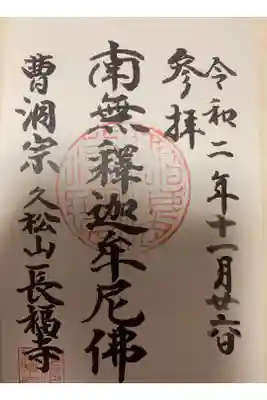 令和二年十一月廿六日
参拝
南無釋迦牟尼佛
曹洞宗 久松山 長福寺